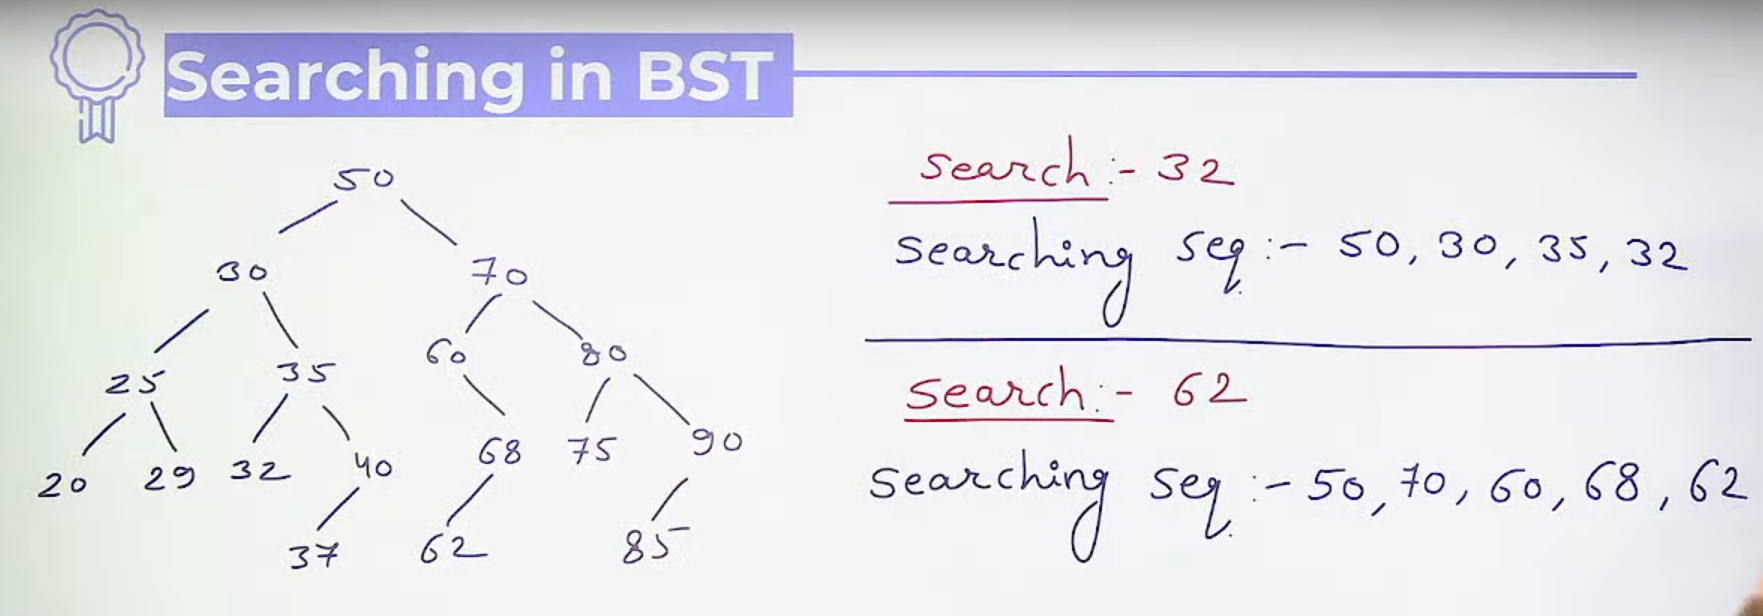 Searching in BST
50
30 70
25 35 60 80
20 29 32 40 68 75 90
37 62 85
Search:- 32
Searching seq:- 50, 30, 35, 32
Search:- 62
Searching seq:- 50, 70, 60, 68, 62